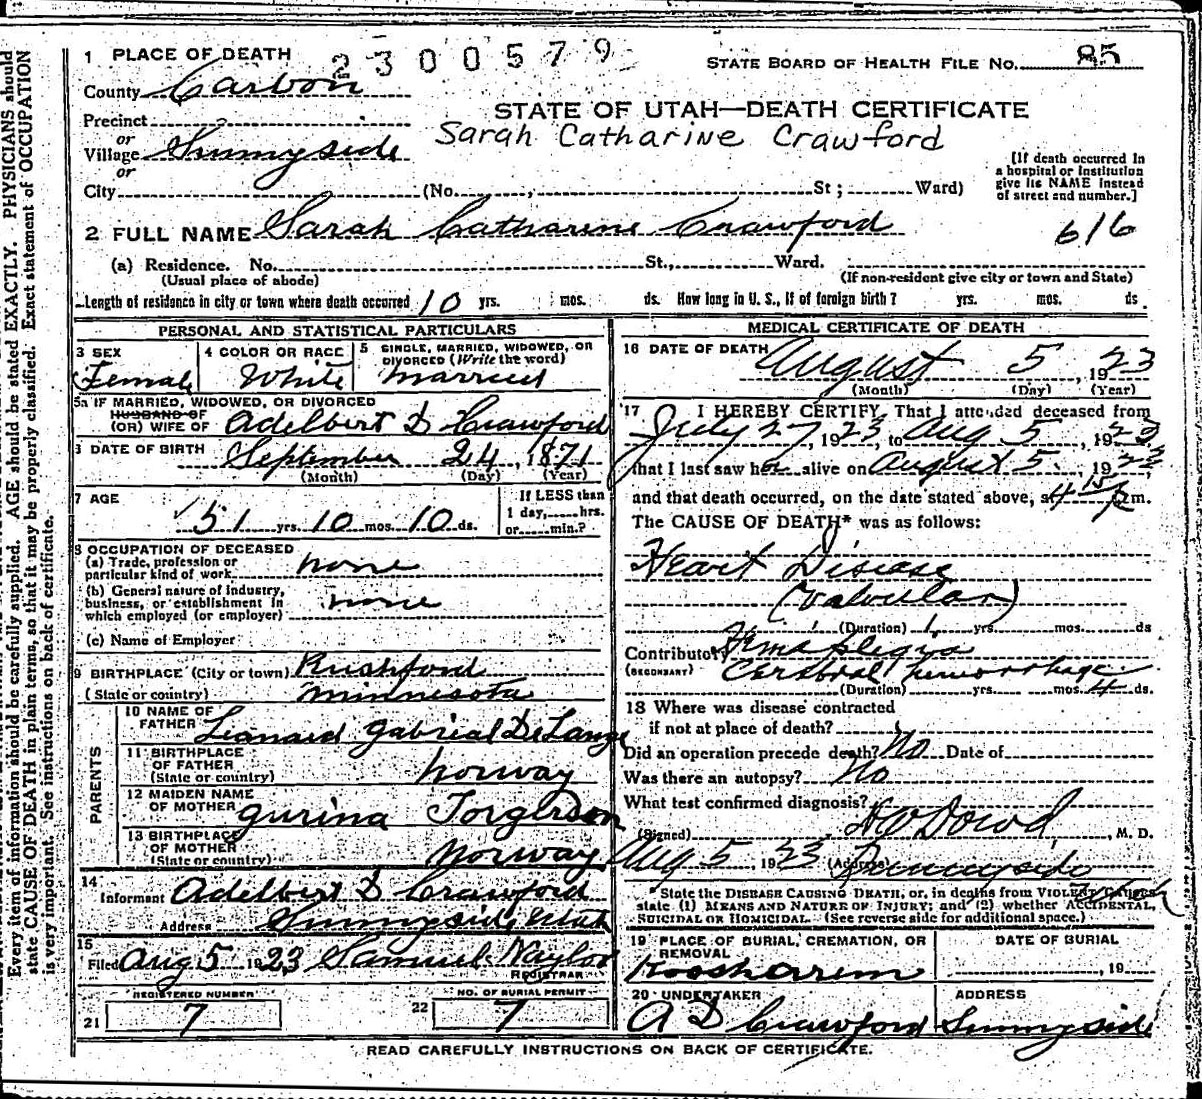 1 PLACE OF DEATH 2300579
STATE BOARD OF HEALTH FILE No. 85
County Carbon
STATE OF UTAH—DEATH CERTIFICATE
Precinct
Sarah Catharine Crawford
or
Village Sunnyside
or
City (No. St; Ward)
[If death occurred in
a hospital or institution
give its NAME instead
of street and number.]
2 FULL NAME Sarah Catharine Crawford
616
(a) Residence. No. St., Ward.
(Usual place of abode) (If non-resident give city or town and State)
Length of residence in city or town where death occurred 10 yrs. mos. ds. How long in U. S., if of foreign birth? yrs. mos. ds.
PERSONAL AND STATISTICAL PARTICULARS
3 SEX
Female
4 COLOR OR RACE
White
5 SINGLE, MARRIED, WIDOWED, OR
DIVORCED (Write the word)
married
5a IF MARRIED, WIDOWED, OR DIVORCED
HUSBAND OF
(OR) WIFE OF Adelbert D Crawford
DATE OF BIRTH September 24, 1871
(Month) (Day) (Year)
7 AGE
51 yrs. 10 mos. 10 ds.
If LESS than
1 day, hrs.
or min.?
8 OCCUPATION OF DECEASED
(a) Trade, profession or
particular kind of work none
(b) General nature of industry,
business, or establishment in
which employed (or employer) none
(c) Name of Employer
9 BIRTHPLACE (City or town) Rushford
(State or country) Minnesota
PARENTS
10 NAME OF
FATHER Leanard Gabrial DeLange
11 BIRTHPLACE
OF FATHER
(State or country) Norway
12 MAIDEN NAME
OF MOTHER Gurina Torgerson
13 BIRTHPLACE
OF MOTHER
(State or country) Norway
14
Informant Adelbert D Crawford
Address Sunnyside, Utah
15
Filed Aug 5 1923 Samuel Naylor
REGISTRAR
REGISTERED NUMBER
21 7
NO. OF BURIAL PERMIT
22 7
MEDICAL CERTIFICATE OF DEATH
16 DATE OF DEATH August 5, 1923
(Month) (Day) (Year)
17 I HEREBY CERTIFY, That I attended deceased from
July 27, 1923, to Aug 5, 1923
that I last saw her alive on August 5, 1923
and that death occurred, on the date stated above, at 4 15 p m.
The CAUSE OF DEATH* was as follows:
Heart Disease
(Valvular)
(Duration) 1 yrs. mos. ds
Contributory Hemaplegia
(SECONDARY) Cerebral hemorrhage
(Duration) yrs. mos. 4 ds.
18 Where was disease contracted
if not at place of death?
Did an operation precede death? No Date of
Was there an autopsy? No
What test confirmed diagnosis?
(Signed) Dowd, M. D.
Aug 5 1923 (Address) Sunnyside
Utah
State the DISEASE CAUSING DEATH, or, in deaths from VIOLENT CAUSES,
state (1) MEANS AND NATURE OF INJURY; and (2) whether ACCIDENTAL,
SUICIDAL OR HOMICIDAL. (See reverse side for additional space.)
19 PLACE OF BURIAL, CREMATION, OR
REMOVAL
Koosharem
DATE OF BURIAL
, 19
20 UNDERTAKER
A D Crawford
ADDRESS
Sunnyside
READ CAREFULLY INSTRUCTIONS ON BACK OF CERTIFICATE.
Every item of information should be carefully supplied. AGE should be stated EXACTLY. PHYSICIANS should
state CAUSE OF DEATH in plain terms, so that it may be properly classified. Exact statement of OCCUPATION
is very important. See instructions on back of certificate.